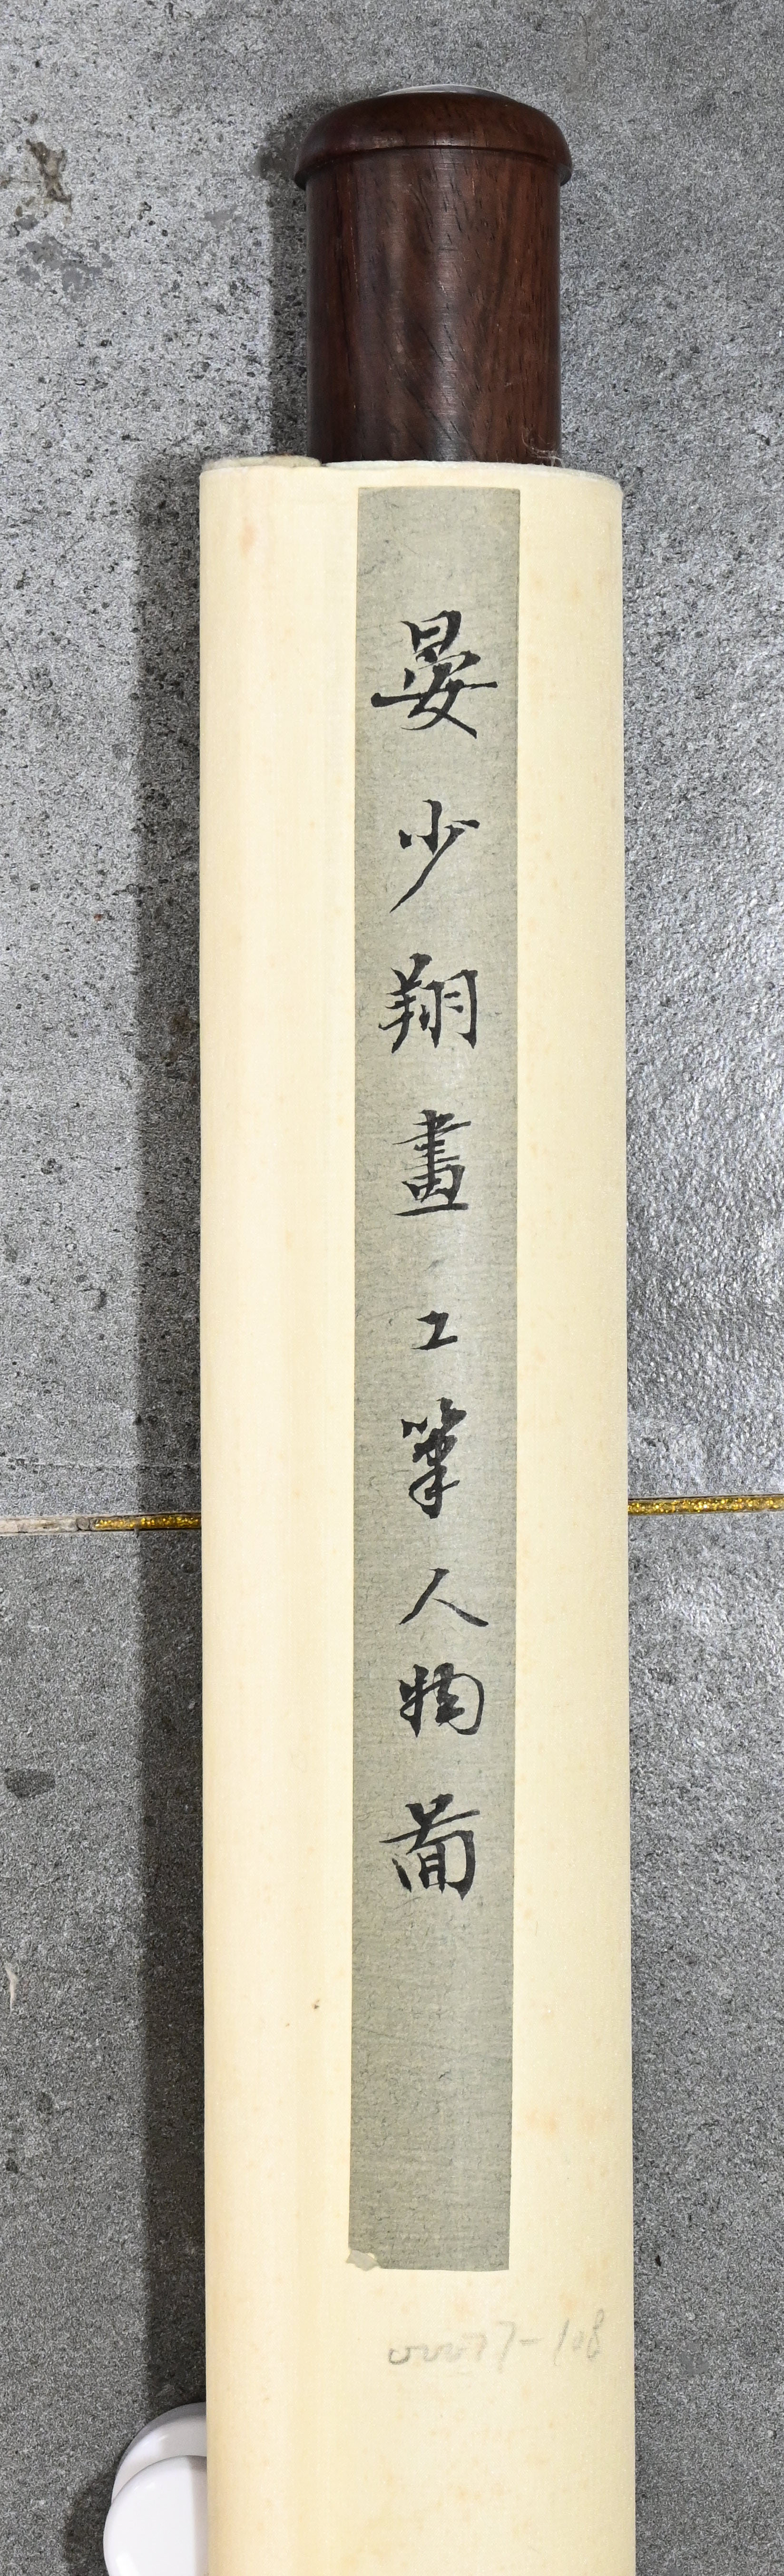 晏少翔畫工筆人物啚
00077-108